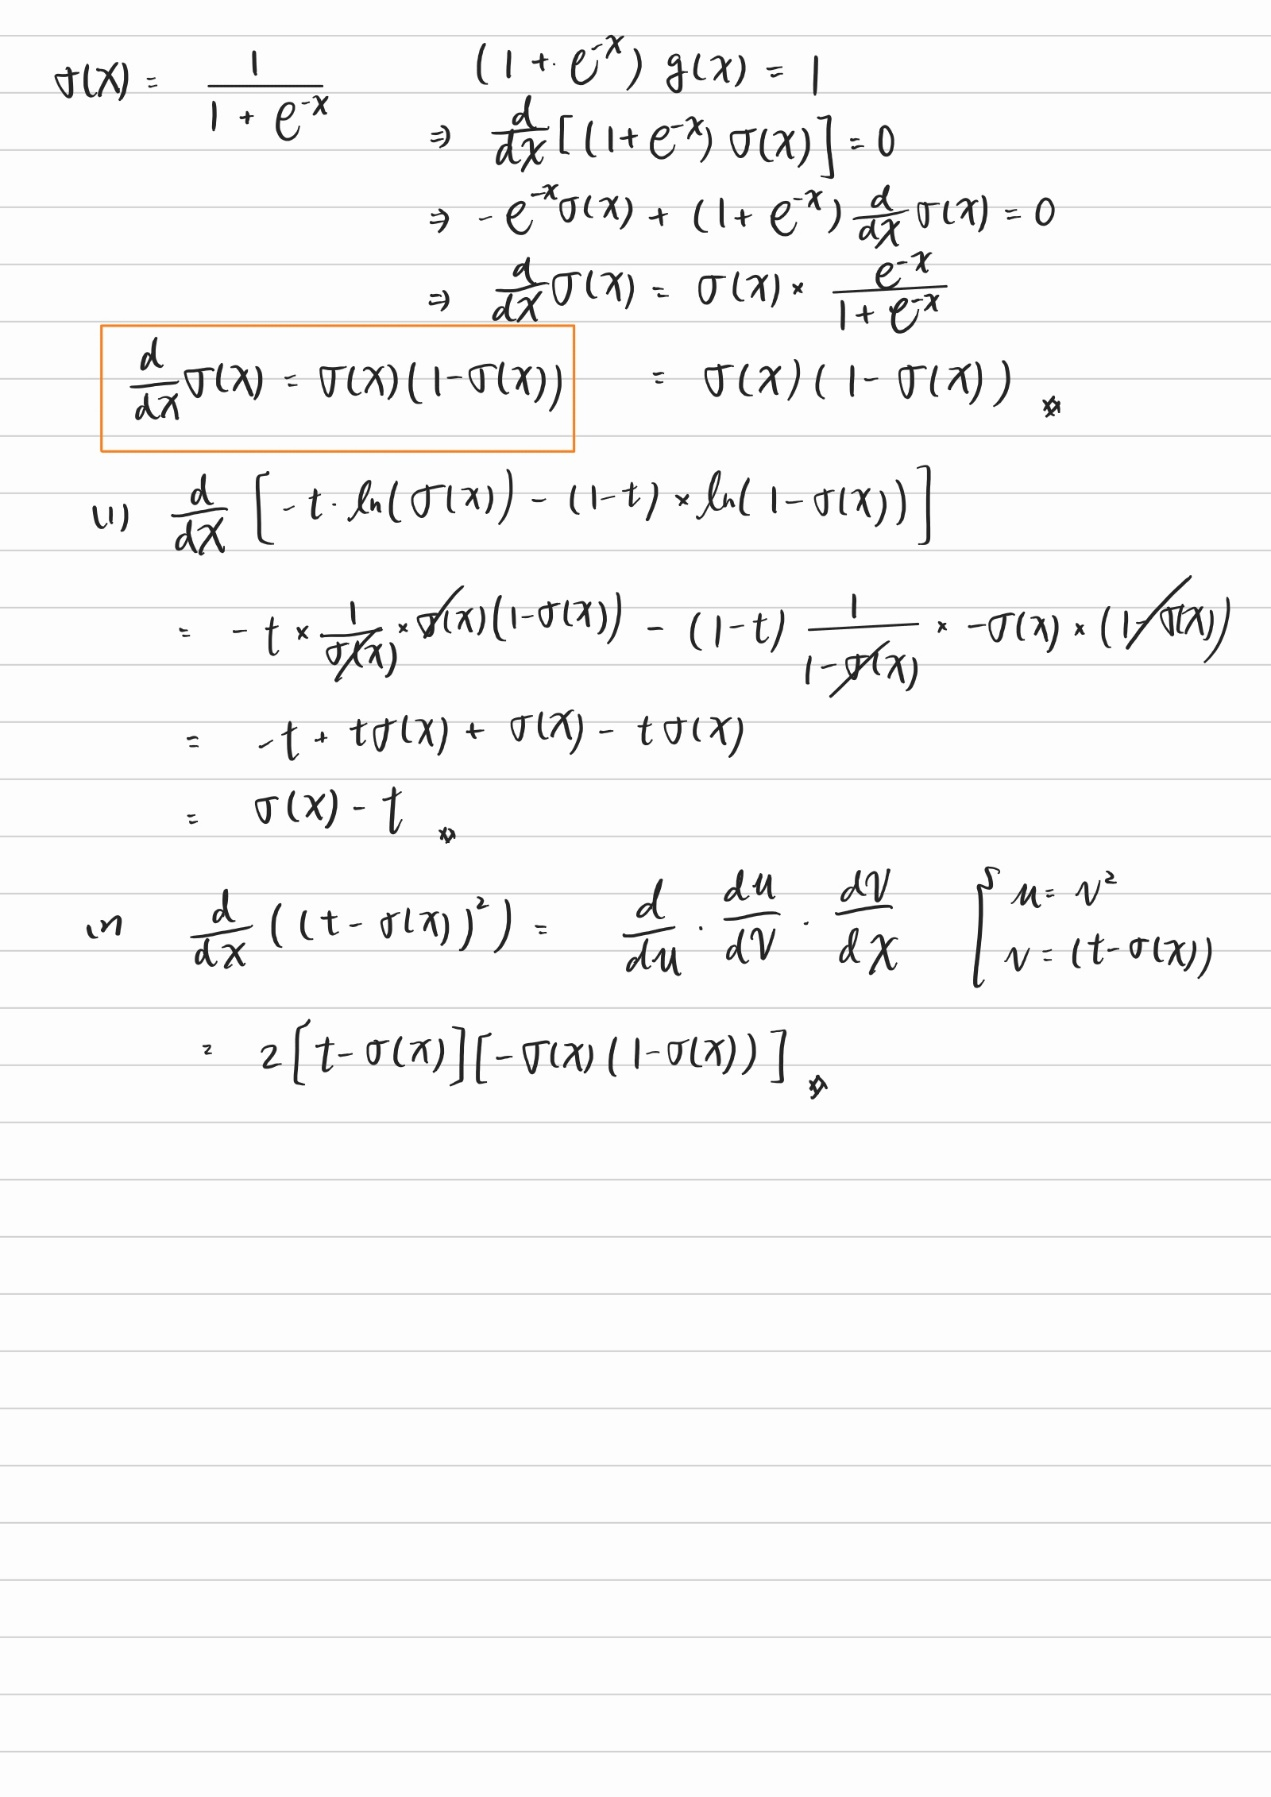 σ(x) = 1/(1 + e^-x)
(1 + e^-x) g(x) = 1
⇒ d/dx [(1+e^-x) σ(x)] = 0
⇒ -e^-x σ(x) + (1+e^-x) d/dx σ(x) = 0
⇒ d/dx σ(x) = σ(x) × e^-x/(1+e^-x)
d/dx σ(x) = σ(x)(1-σ(x))
= σ(x)(1-σ(x))
(1) d/dx [-t·ln(σ(x)) - (1-t) × ln(1-σ(x))]
= -t × 1/σ(x) × σ(x)(1-σ(x)) - (1-t) 1/(1-σ(x)) × -σ(x) × (1-σ(x))
= -t + tσ(x) + σ(x) - tσ(x)
= σ(x) - t
d/dx ((t-σ(x))²) = d/du · du/dv · dv/dx { u = v²
v = (t-σ(x))
= 2[t-σ(x)][-σ(x)(1-σ(x))]